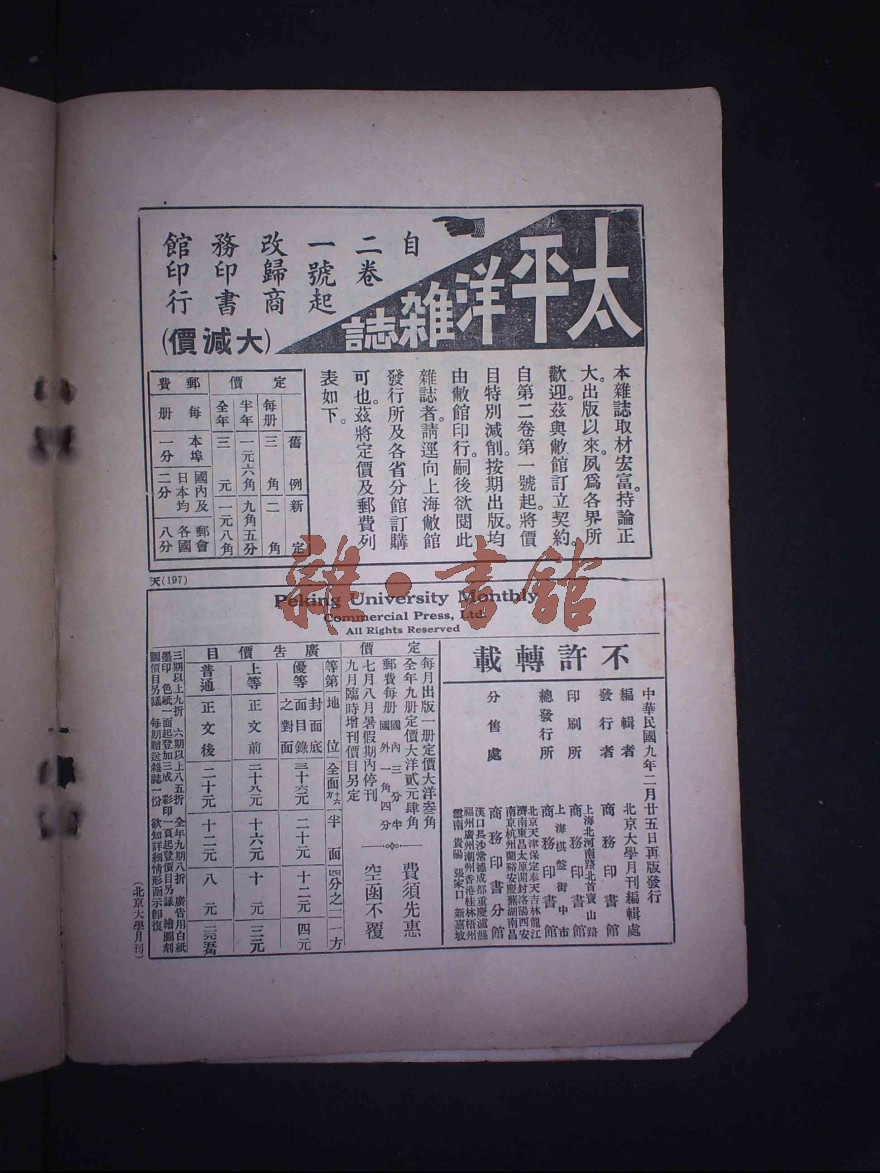 太平洋雜誌
自二卷一號起改歸商務印書館印行
(大減價)
本雜誌取材宏富。持論正
大。出版以來。夙爲各界所
歡迎。茲與敝館訂立契約。
自第二卷第一號起。將價
目特別減削。按期出版。均
由敝館印行。嗣後欲閱此
雜誌者。請逕向上海敝館
發行所及各省分館訂購
可也。茲將定價及郵費列
表如下。
定價
舊例 新定
每册 三角 二角
半年 一元六角 九角五分
全年 三元 一元八角
郵費
每册
本埠 一分
國內及日本均 二分
郵會各國 八分
天(197)
雜·書館
Peking University Monthly
Commercial Press, Ltd.
All Rights Reserved
不許轉載
中華民國九年二月廿五日再版發行
編輯者 北京大學月刊編輯處
發行者 商務印書館
印刷所 上海北河南路北首寶山路 商務印書館
總發行所 上海棋盤街中市 商務印書館
分售處
北京天津保定奉天吉林龍江
濟南東昌太原開封洛陽西安
南京杭州蘭谿安慶蕪湖南昌
商務印書分館
漢口長沙常德成都重慶瀘縣
福州廣州潮州香港桂林梧州
雲南貴陽張家口新嘉坡
定價
每月出版一册定價大洋叁角
全年九册定價大洋貳元肆角
郵費每册國內三分半國外一角四分
七月八月暑假期內停刊
九月臨時增刊價目另定
費須先惠
空函不覆
廣告價目
等第 地位 全面 半面 四分之一
優等 封面底面目錄之對面 三十六元 二十元 十二元 四元
上等 正文前 二十八元 十六元 十元 三元
普通 正文後 二十元 十二元 八元
三期以上九折 六期以上八五折 全年九期八折 廣告用白紙
墨印 色紙一面起登加三成 彩印一頁起登價目另議 繪圖刻
圖價目另議 每期贈送雜誌一份 欲知詳細情形函示即復
(北京大學月刊)